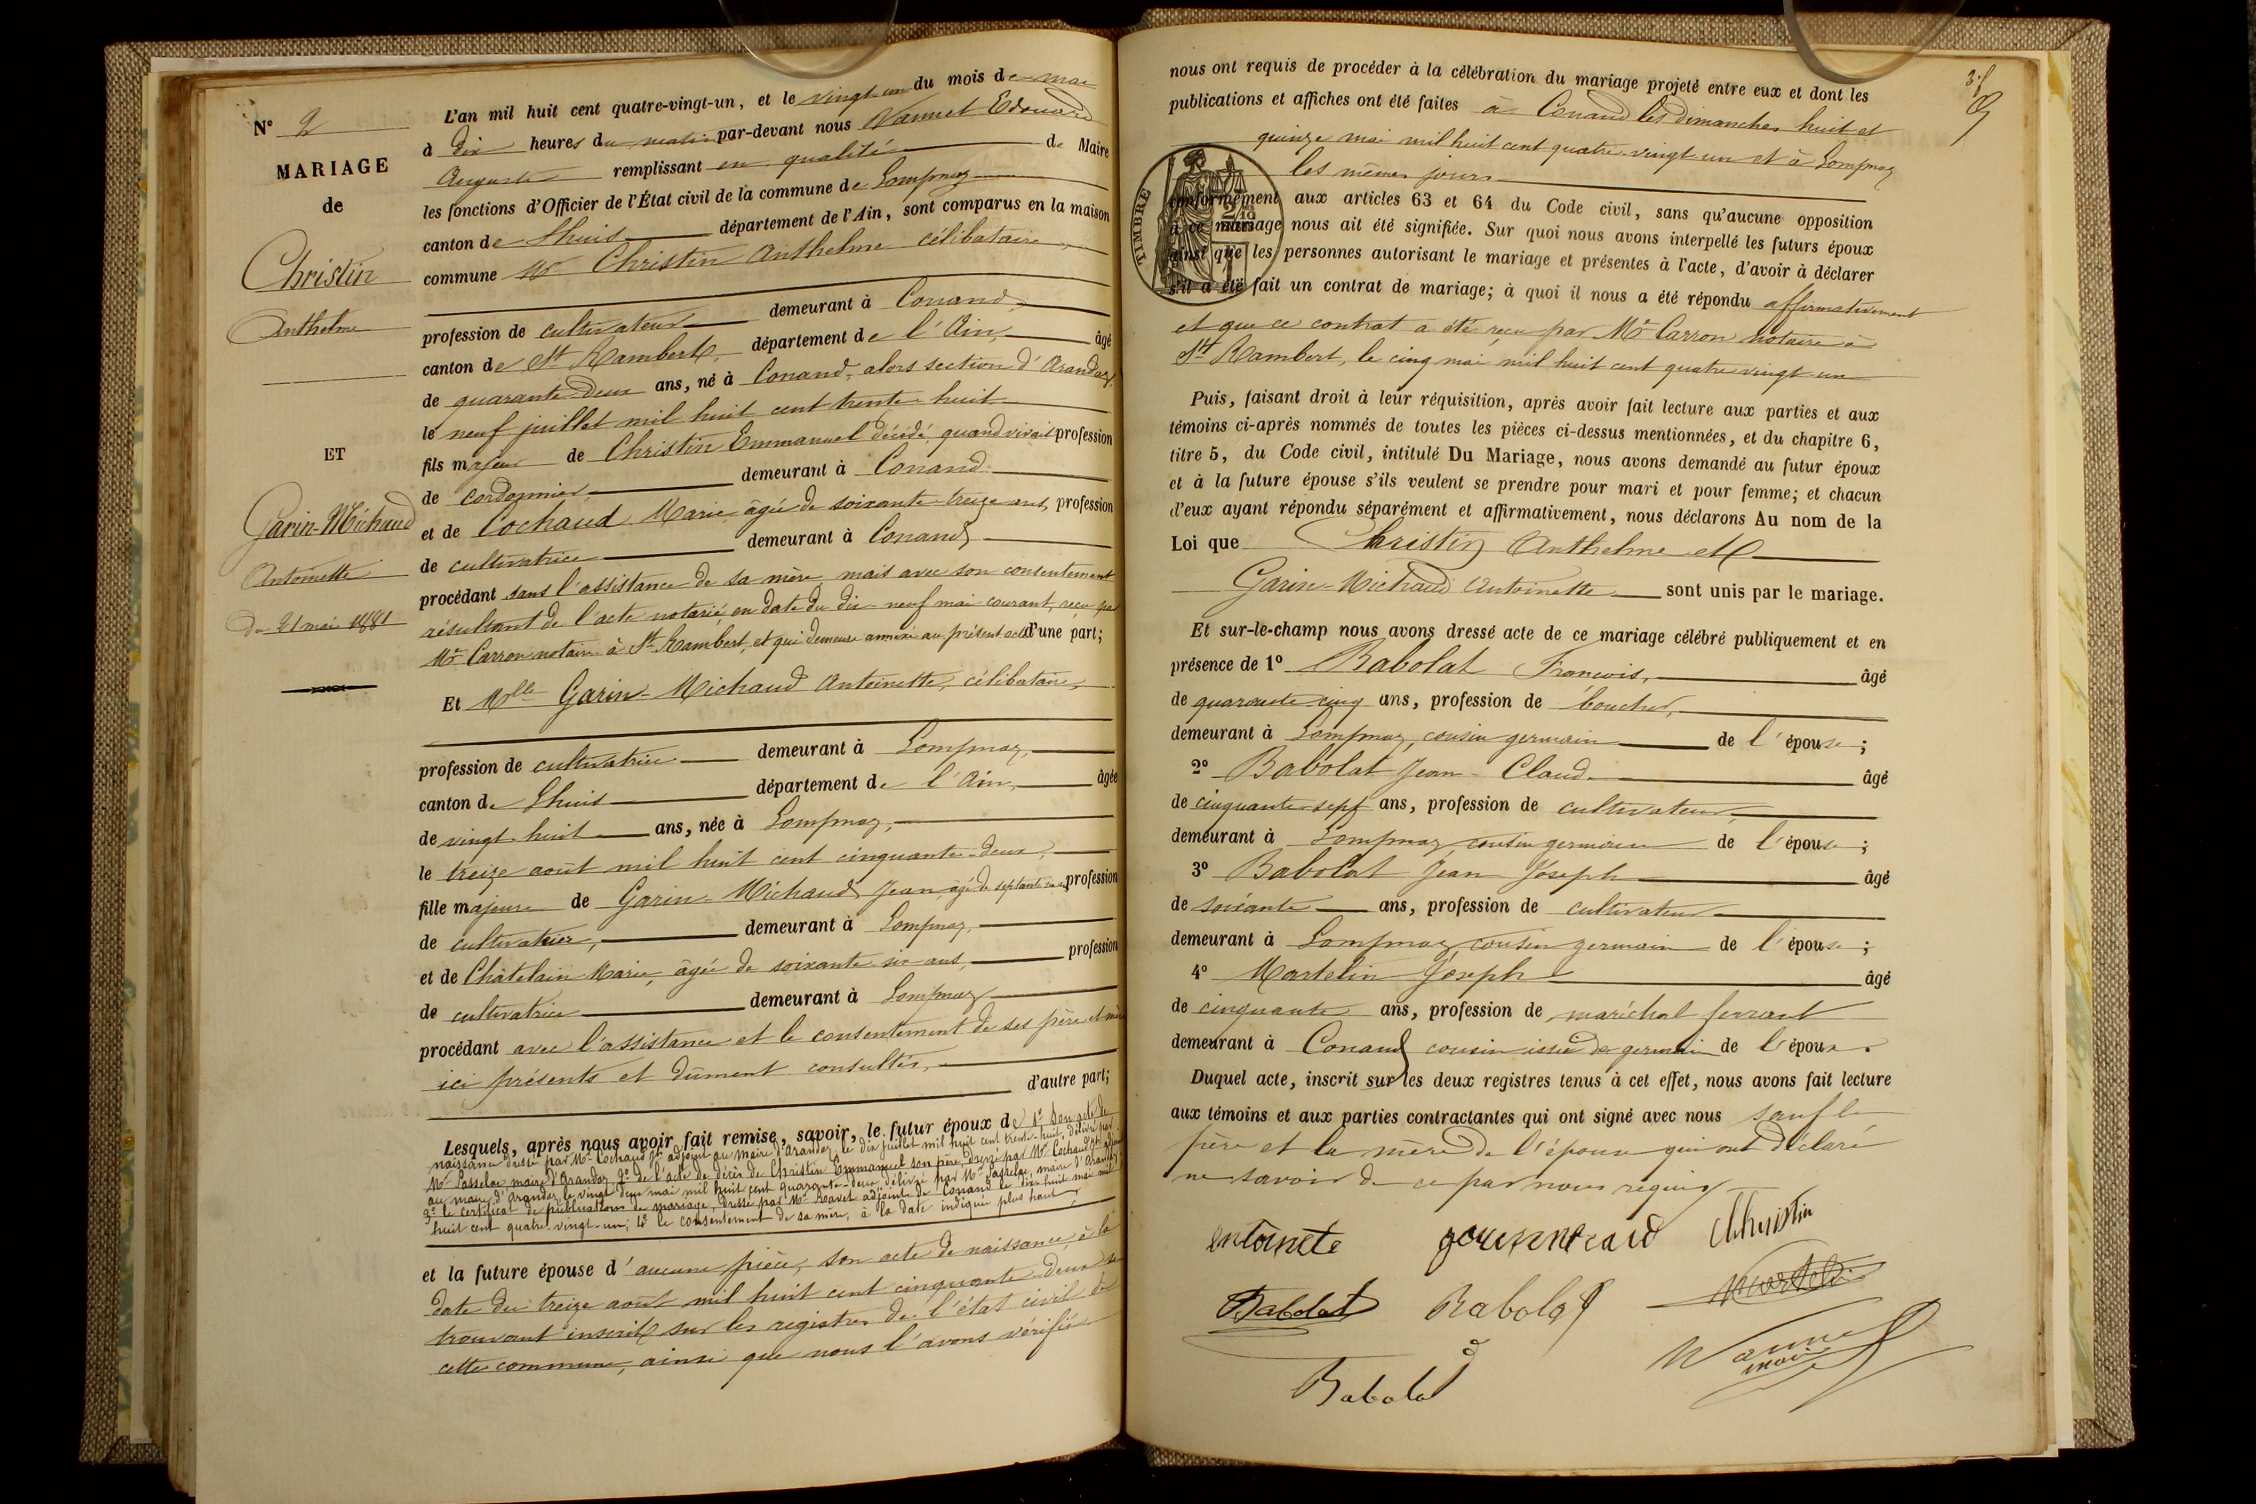 N° 2
MARIAGE
de
Christin
Anthelme
ET
Garin-Michaud
Antoinette
Du 21 mai 1881
L'an mil huit cent quatre-vingt-un, et le vingt-un du mois de mai
à dix heures du matin par-devant nous Vannet Edouard
Auguste remplissant en qualité de Maire
les fonctions d'Officier de l'État civil de la commune de Lompnaz
canton de Lhuis département de l'Ain, sont comparus en la maison
commune Mr Christin Anthelme célibataire,
profession de cultivateur demeurant à Conand,
canton de St Rambert, département de l'Ain, âgé
de quarante-deux ans, né à Conand, alors section d'Arandaz,
le neuf juillet mil huit cent trente-huit
fils majeur de Christin Emmanuel décédé, quand vivait profession
de cordonnier demeurant à Conand
et de Cochaud Marie âgée de soixante-treize ans, profession
de cultivatrice demeurant à Conand,
procédant sans l'assistance de sa mère, mais avec son consentement
résultant de l'acte notarié, en date du dix-neuf mai courant, reçu par
Mr Carron notaire à St Rambert, et qui demeure annexé au présent acte d'une part;
Et Mlle Garin-Michaud Antoinette, célibataire,
profession de cultivatrice demeurant à Lompnaz,
canton de Lhuis département de l'Ain, âgée
de vingt-huit ans, née à Lompnaz,
le treize août mil huit cent cinquante-deux,
fille majeure de Garin-Michaud Jean, âgé de septante ans profession
de cultivateur, demeurant à Lompnaz,
et de Châtelain Marie, âgée de soixante-six ans, profession
de cultivatrice demeurant à Lompnaz
procédant avec l'assistance et le consentement de ses père et mère
ici présents et dûment consultés, d'autre part;
Lesquels, après nous avoir fait remise, savoir, le futur époux de 1° Son acte de
naissance dressé par Mr Cochaud adjoint au maire d'Arandaz, le dix juillet mil huit cent trente-huit, délivré par
Mr Passelac, maire d'Arandaz, 2° de l'acte de décès de Christin Emmanuel son père, dressé par Mr Cochaud
au maire d'Arandaz, le vingt-deux mai mil huit cent quarante-deux, délivré par Mr Passelac, maire d'Arandaz
3° le certificat de publications de mariage, dressé par Mr Ravet adjoint de Conand le dix-huit mai mil
huit cent quatre-vingt-un; 4° le consentement de sa mère, à la date indiquée plus haut,
et la future épouse d'aucune pièce, son acte de naissance, à la
date du treize août mil huit cent cinquante-deux se
trouvant inscrit sur les registres de l'état civil de
cette commune, ainsi que nous l'avons vérifié
nous ont requis de procéder à la célébration du mariage projeté entre eux et dont les
publications et affiches ont été faites à Conand les dimanches huit et
quinze mai mil huit cent quatre-vingt-un et à Lompnaz
les mêmes jours
TIMBRE
conformément aux articles 63 et 64 du Code civil, sans qu'aucune opposition
à ce mariage nous ait été signifiée. Sur quoi nous avons interpellé les futurs époux
ainsi que les personnes autorisant le mariage et présentes à l'acte, d'avoir à déclarer
s'il a été fait un contrat de mariage; à quoi il nous a été répondu affirmativement
et que ce contrat a été reçu par Mr Carron notaire à
St Rambert, le cinq mai mil huit cent quatre vingt un
Puis, faisant droit à leur réquisition, après avoir fait lecture aux parties et aux
témoins ci-après nommés de toutes les pièces ci-dessus mentionnées, et du chapitre 6,
titre 5, du Code civil, intitulé Du Mariage, nous avons demandé au futur époux
et à la future épouse s'ils veulent se prendre pour mari et pour femme; et chacun
d'eux ayant répondu séparément et affirmativement, nous déclarons Au nom de la
Loi que Christin Anthelme et
Garin-Michaud Antoinette sont unis par le mariage.
Et sur-le-champ nous avons dressé acte de ce mariage célébré publiquement et en
présence de 1° Babolat François, âgé
de quarante-cinq ans, profession de boucher,
demeurant à Lompnaz, cousin germain de l'épouse;
2° Babolat Jean-Claude âgé
de cinquante-sept ans, profession de cultivateur,
demeurant à Lompnaz cousin germain de l'épouse;
3° Babolat Jean Joseph âgé
de soixante ans, profession de cultivateur
demeurant à Lompnaz, cousin germain de l'épouse;
4° Martelin Joseph âgé
de cinquante ans, profession de maréchal ferrant
demeurant à Conand cousin issu de germain de l'époux.
Duquel acte, inscrit sur les deux registres tenus à cet effet, nous avons fait lecture
aux témoins et aux parties contractantes qui ont signé avec nous sauf le
père et la mère de l'épouse qui ont déclaré
ne savoir de ce par nous requis
antoinete Christin
Babolat Babolat Martelin
Babolat
Vannet
maire